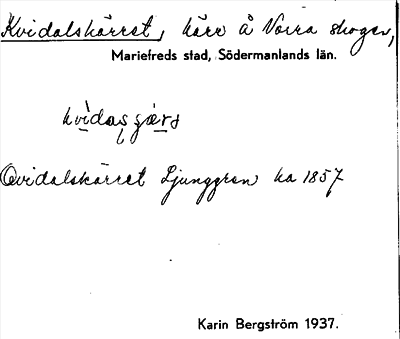 Kvidalskärret, kärr å Norra skogen,
Mariefreds stad, Södermanlands län.
Qvidalskärret Ljunggren ka 1857
Karin Bergström 1937.